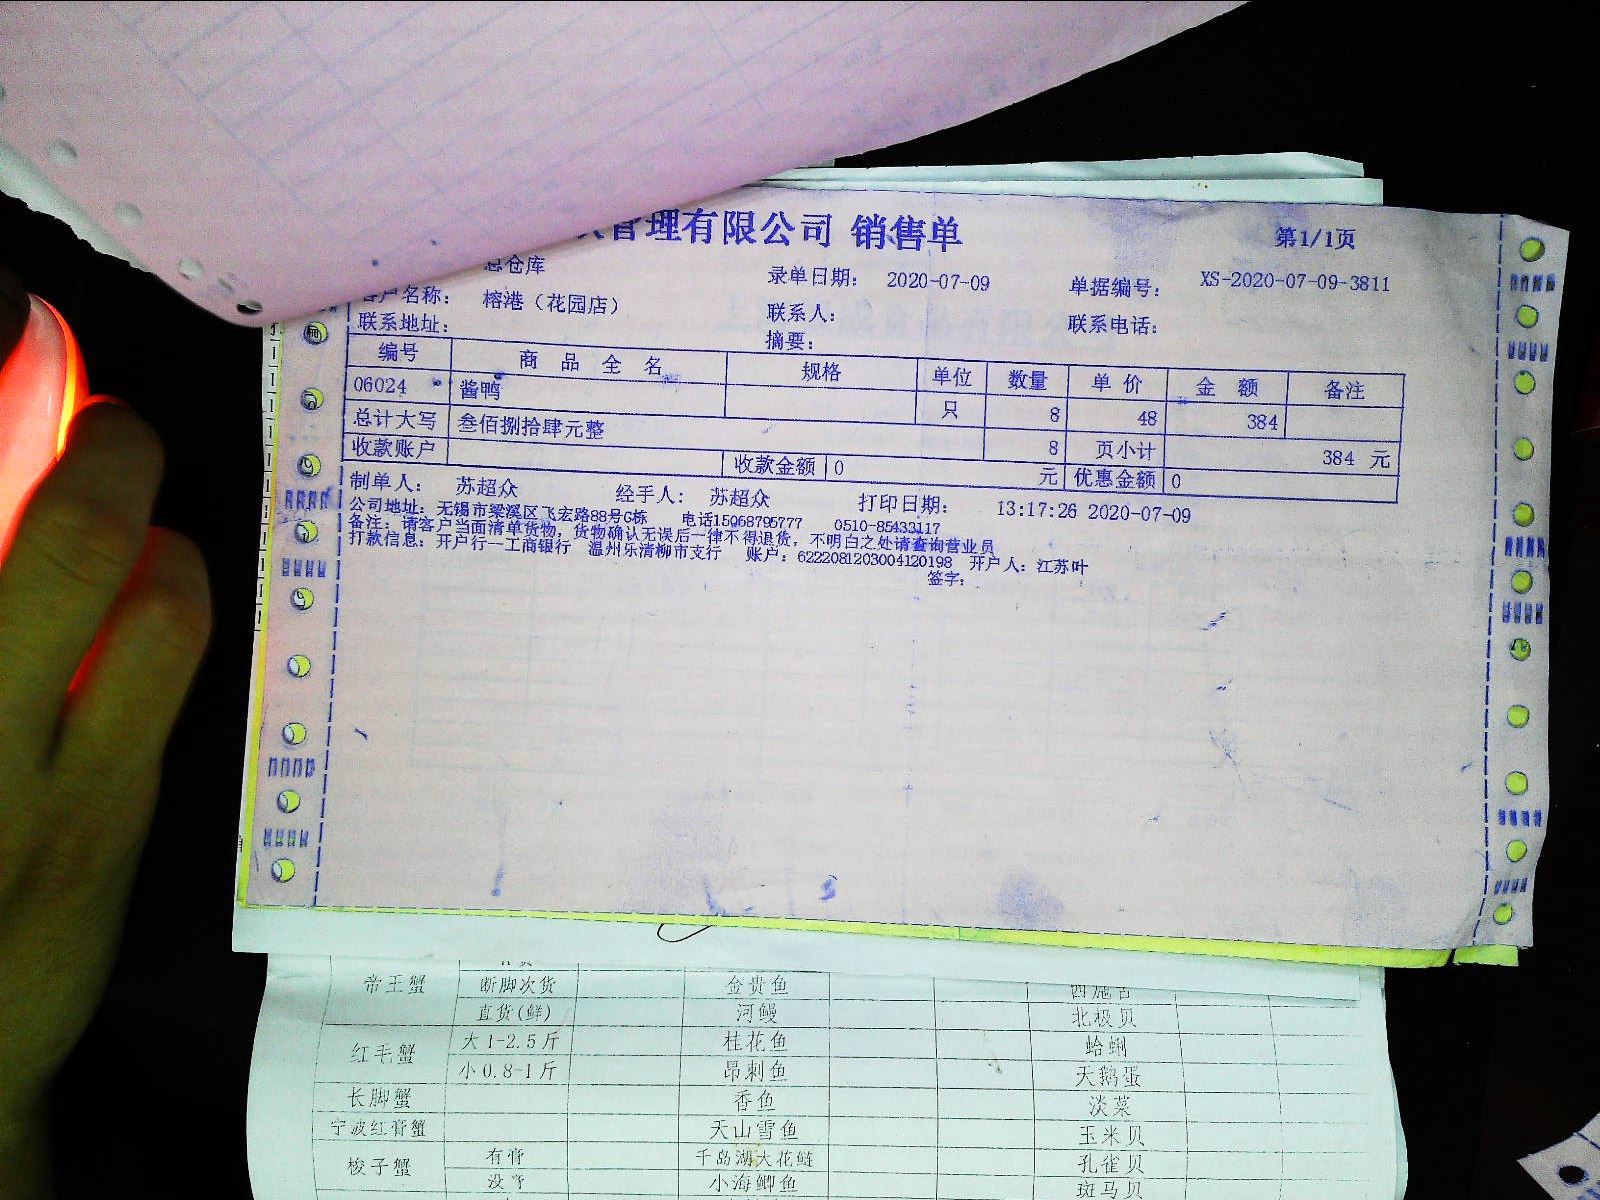 管理有限公司 销售单 第1/1页
总仓库 录单日期： 2020-07-09 单据编号： XS-2020-07-09-3811
客户名称： 榕港（花园店） 联系人： 联系电话：
联系地址： 摘要：
编号 商品全名 规格 单位 数量 单价 金额 备注
06024 酱鸭 只 8 48 384
总计大写 叁佰捌拾肆元整 8 页小计 384 元
收款账户 收款金额 0 元 优惠金额 0
制单人： 苏超众 经手人： 苏超众 打印日期： 13:17:26 2020-07-09
公司地址：无锡市梁溪区飞宏路88号G栋 电话15068795777 0510-85433117
备注：请客户当面清单货物，货物确认无误后一律不得退货，不明白之处请查询营业员
打款信息：开户行一工商银行 温州乐清柳市支行 账户：6222081203004120198 开户人：江苏叶
签字：
帝王蟹 断脚次货 金贵鱼
直货(鲜) 河鳗 北极贝
红毛蟹 大1-2.5斤 桂花鱼 蛤蜊
小0.8-1斤 昂刺鱼 天鹅蛋
长脚蟹 香鱼 淡菜
宁波红膏蟹 天山雪鱼 玉米贝
梭子蟹 有膏 千岛湖大花鲢 孔雀贝
小海鲫鱼 斑马贝